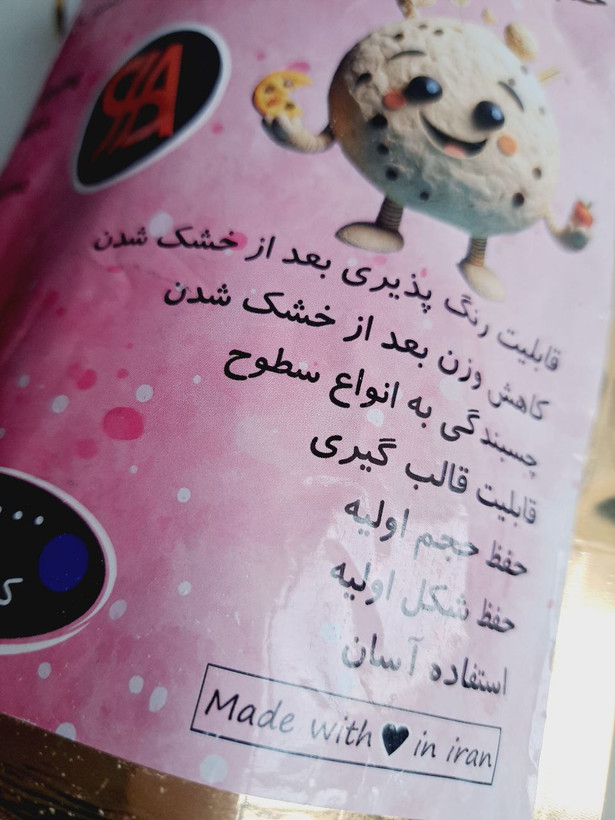 قابلیت رنگ پذیری بعد از خشک شدن
کاهش وزن بعد از خشک شدن
چسبندگی به انواع سطوح
قابلیت قالب گیری
حفظ حجم اولیه
حفظ شکل اولیه
استفاده آسان
Made with in iran